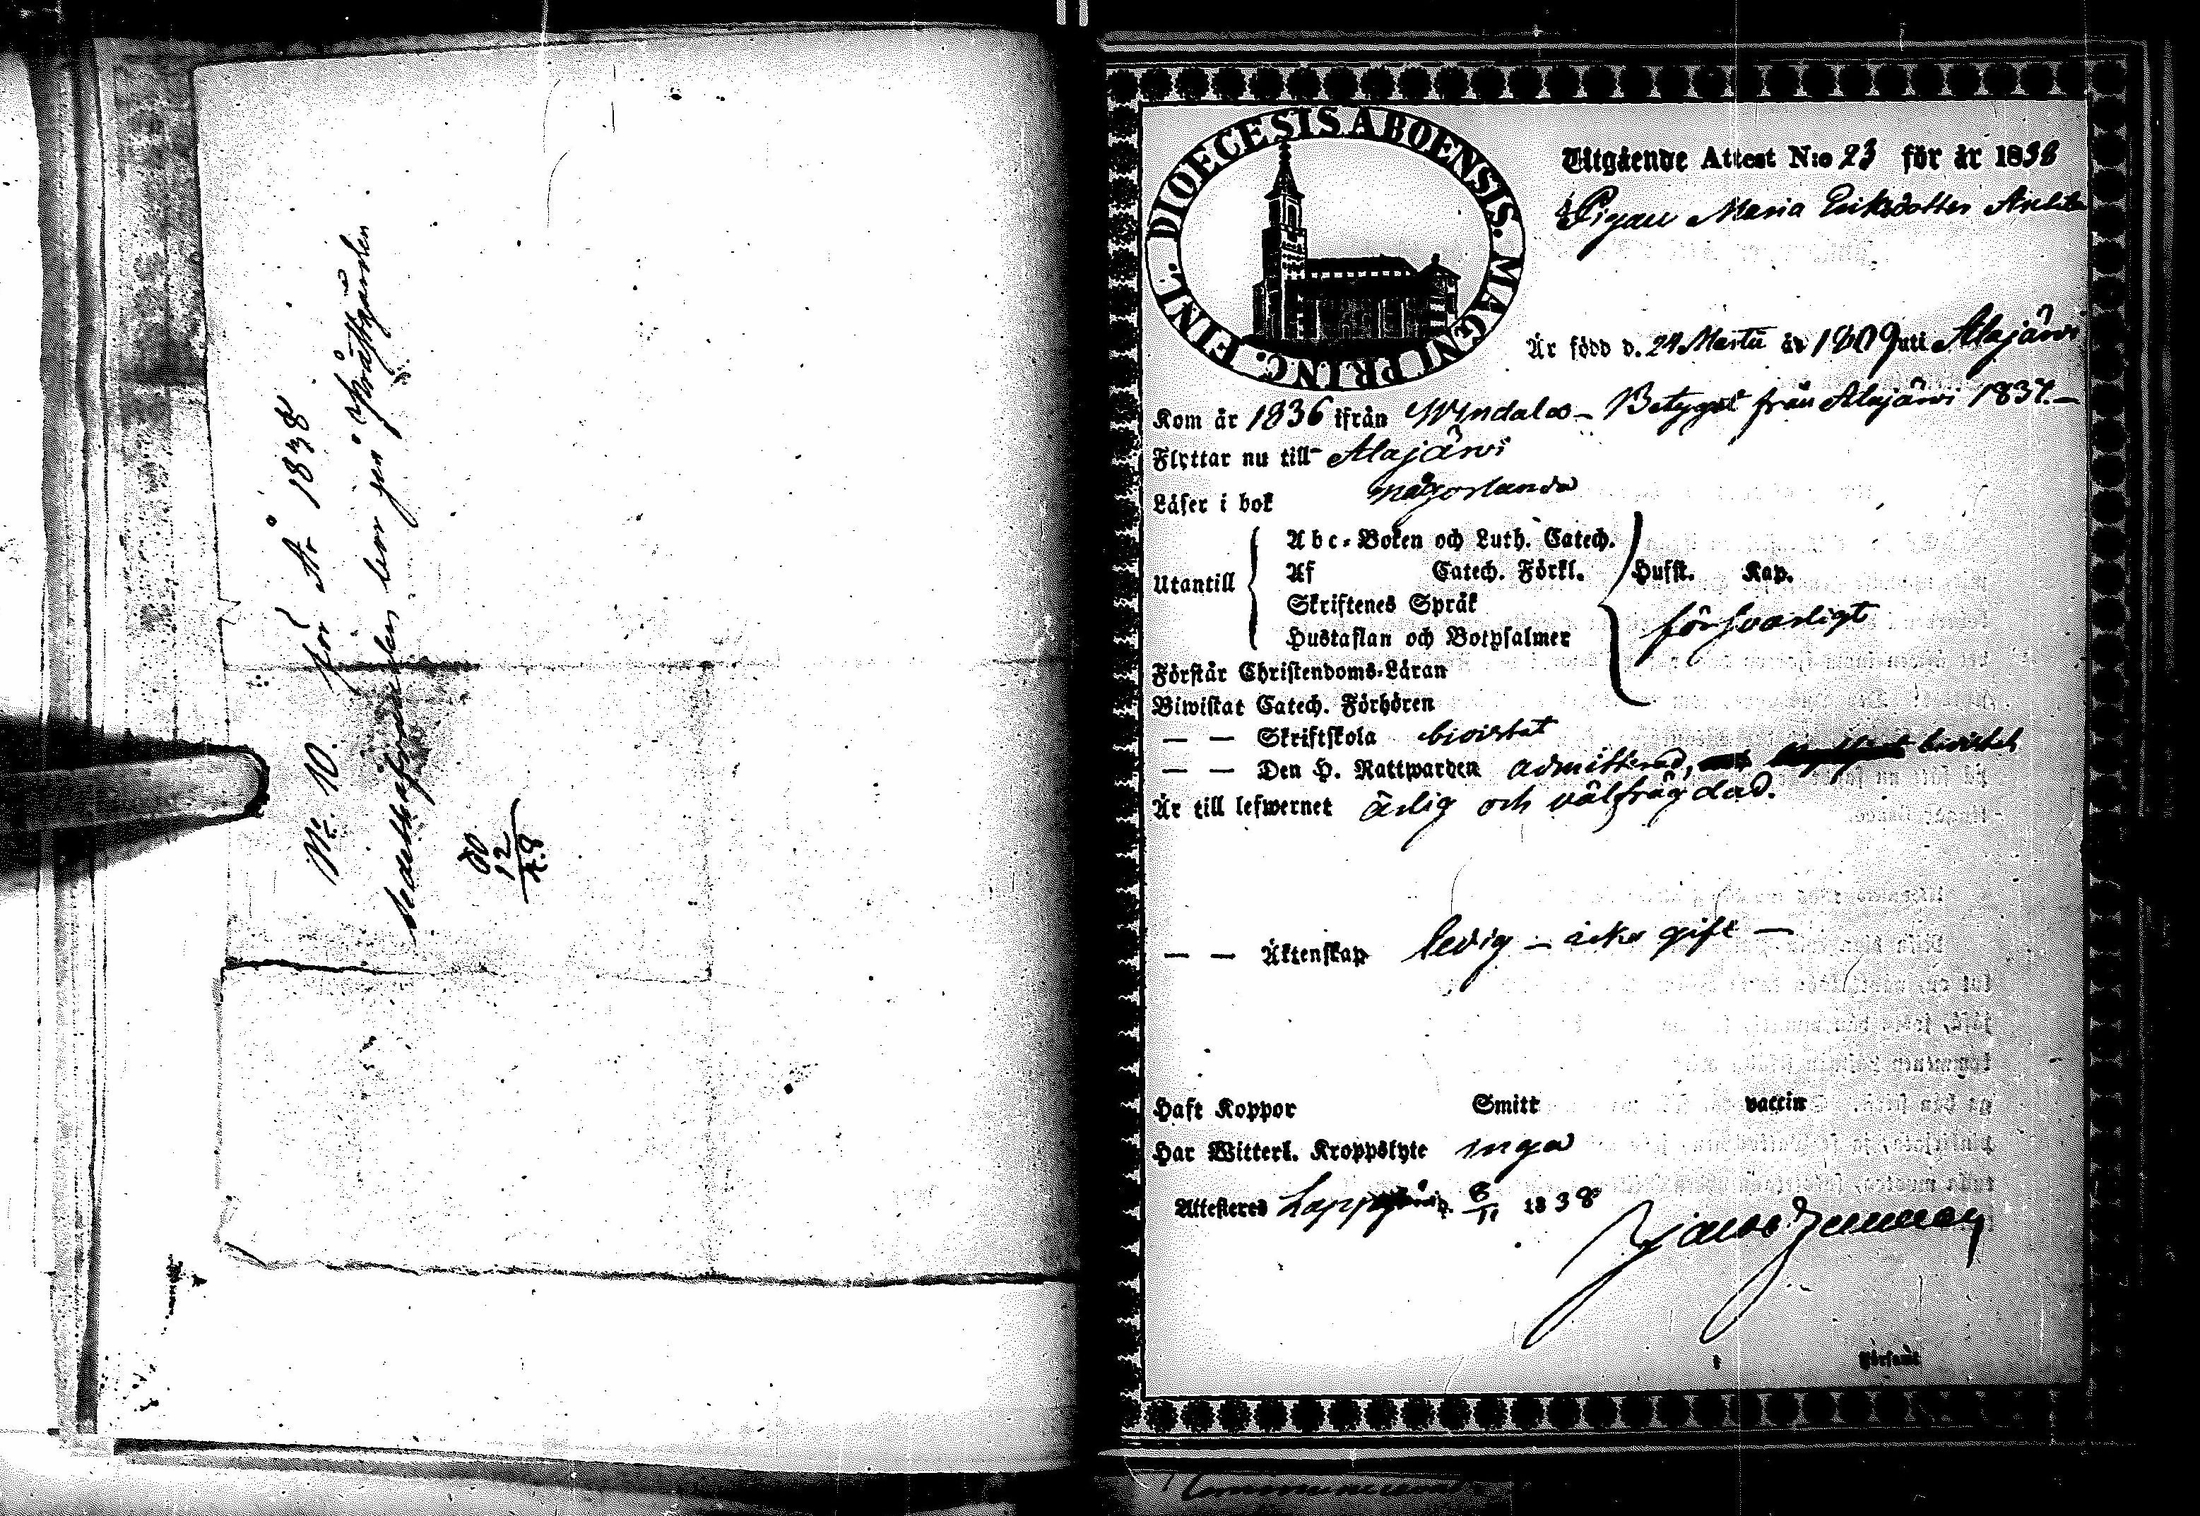 No 10. för År 1838
DIOECESIS ABOENSIS. MAGNI PRINC. FINL.
Utgående Attest N:o 23 för år 1838
Pigan Maria Eriksdotter
Är född d. 24 Martii år 1809 uti Alajärvi
Kom år 1836 ifrån Windala – Betyget från Alajärvi 1837. –
Flyttar nu till Alajärvi
Läser i bok någorlunda
Utantill
Abc-Boken och Luth. Catech.
Af Catech. Förkl. Husst. Kap.
Skriftenes Språk
Hustaflan och Botpsalmer
försvarligt
Förstår Christendoms-Läran
Biwistat Catech. Förhören
— — Skriftskola bivistat
— — Den H. Nattwarden admitterad, bivistat
Är till lefwernet ärlig och välfrägdad.
— — Äktenskap ledig – icke gift –
Haft Koppor Smitt vaccin
Har Witterl. Kroppslyte inga
Attesteras 6/11 1838
Församl